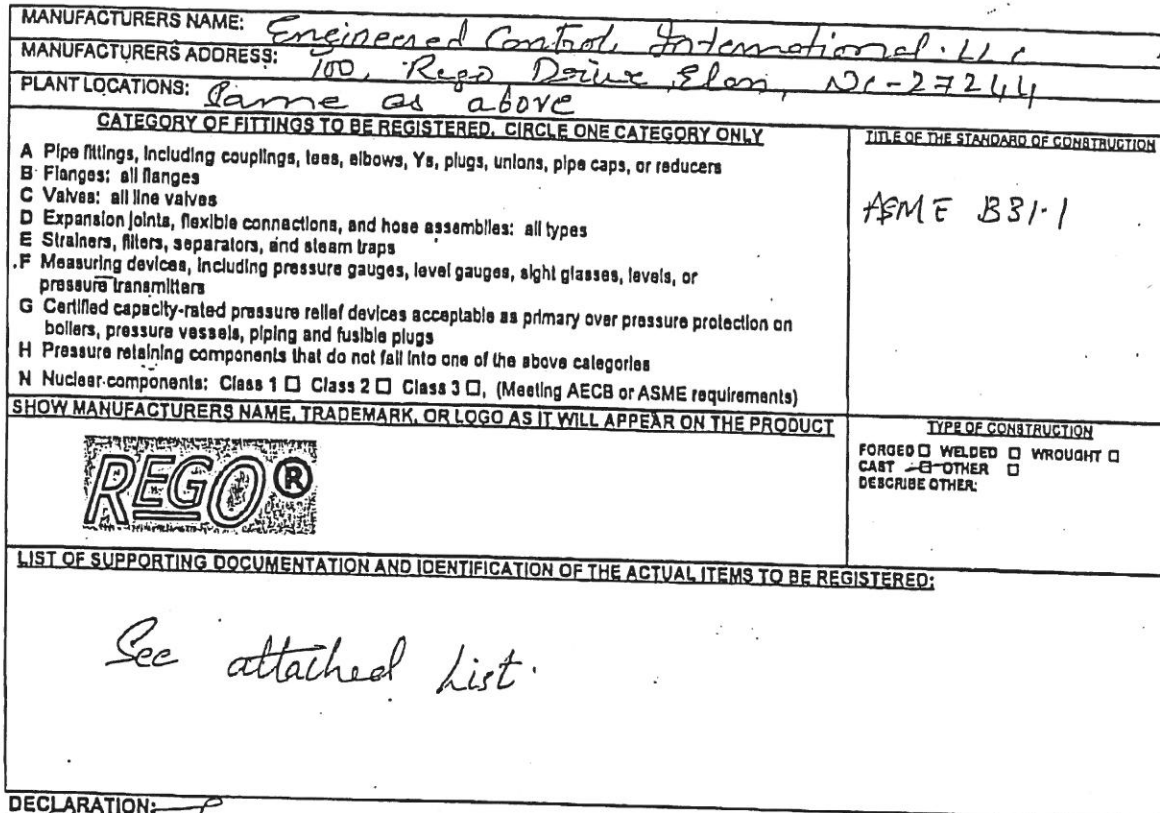 MANUFACTURERS NAME: Engineered Controls International. LLC
MANUFACTURERS ADDRESS: 100, Rego Drive, Elon, NC-27244
PLANT LOCATIONS: Same as above
CATEGORY OF FITTINGS TO BE REGISTERED, CIRCLE ONE CATEGORY ONLY
A Pipe fittings, including couplings, tees, elbows, Ys, plugs, unions, pipe caps, or reducers
B Flanges: all flanges
C Valves: all line valves
D Expansion joints, flexible connections, and hose assemblies: all types
E Strainers, filters, separators, and steam traps
F Measuring devices, including pressure gauges, level gauges, sight glasses, levels, or
pressure transmitters
G Certified capacity-rated pressure relief devices acceptable as primary over pressure protection on
boilers, pressure vessels, piping and fusible plugs
H Pressure retaining components that do not fall into one of the above categories
N Nuclear components: Class 1 ☐ Class 2 ☐ Class 3 ☐, (Meeting AECB or ASME requirements)
TITLE OF THE STANDARD OF CONSTRUCTION
ASME B31.1
SHOW MANUFACTURERS NAME, TRADEMARK, OR LOGO AS IT WILL APPEAR ON THE PRODUCT
REGO®
TYPE OF CONSTRUCTION
FORGED ☐ WELDED ☐ WROUGHT ☐
CAST ☐ OTHER ☐
DESCRIBE OTHER:
LIST OF SUPPORTING DOCUMENTATION AND IDENTIFICATION OF THE ACTUAL ITEMS TO BE REGISTERED:
See attached List.
DECLARATION: